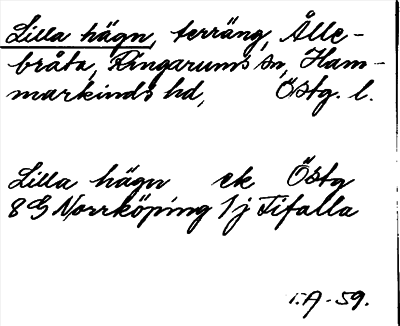 Lilla hägn, terräng, Ålle-
bråta, Ringarums sn, Ham-
markinds hd, Östg. l.
Lilla hägn ek Östg
8 G Norrköping 1 j Tifalla
I.A-59.